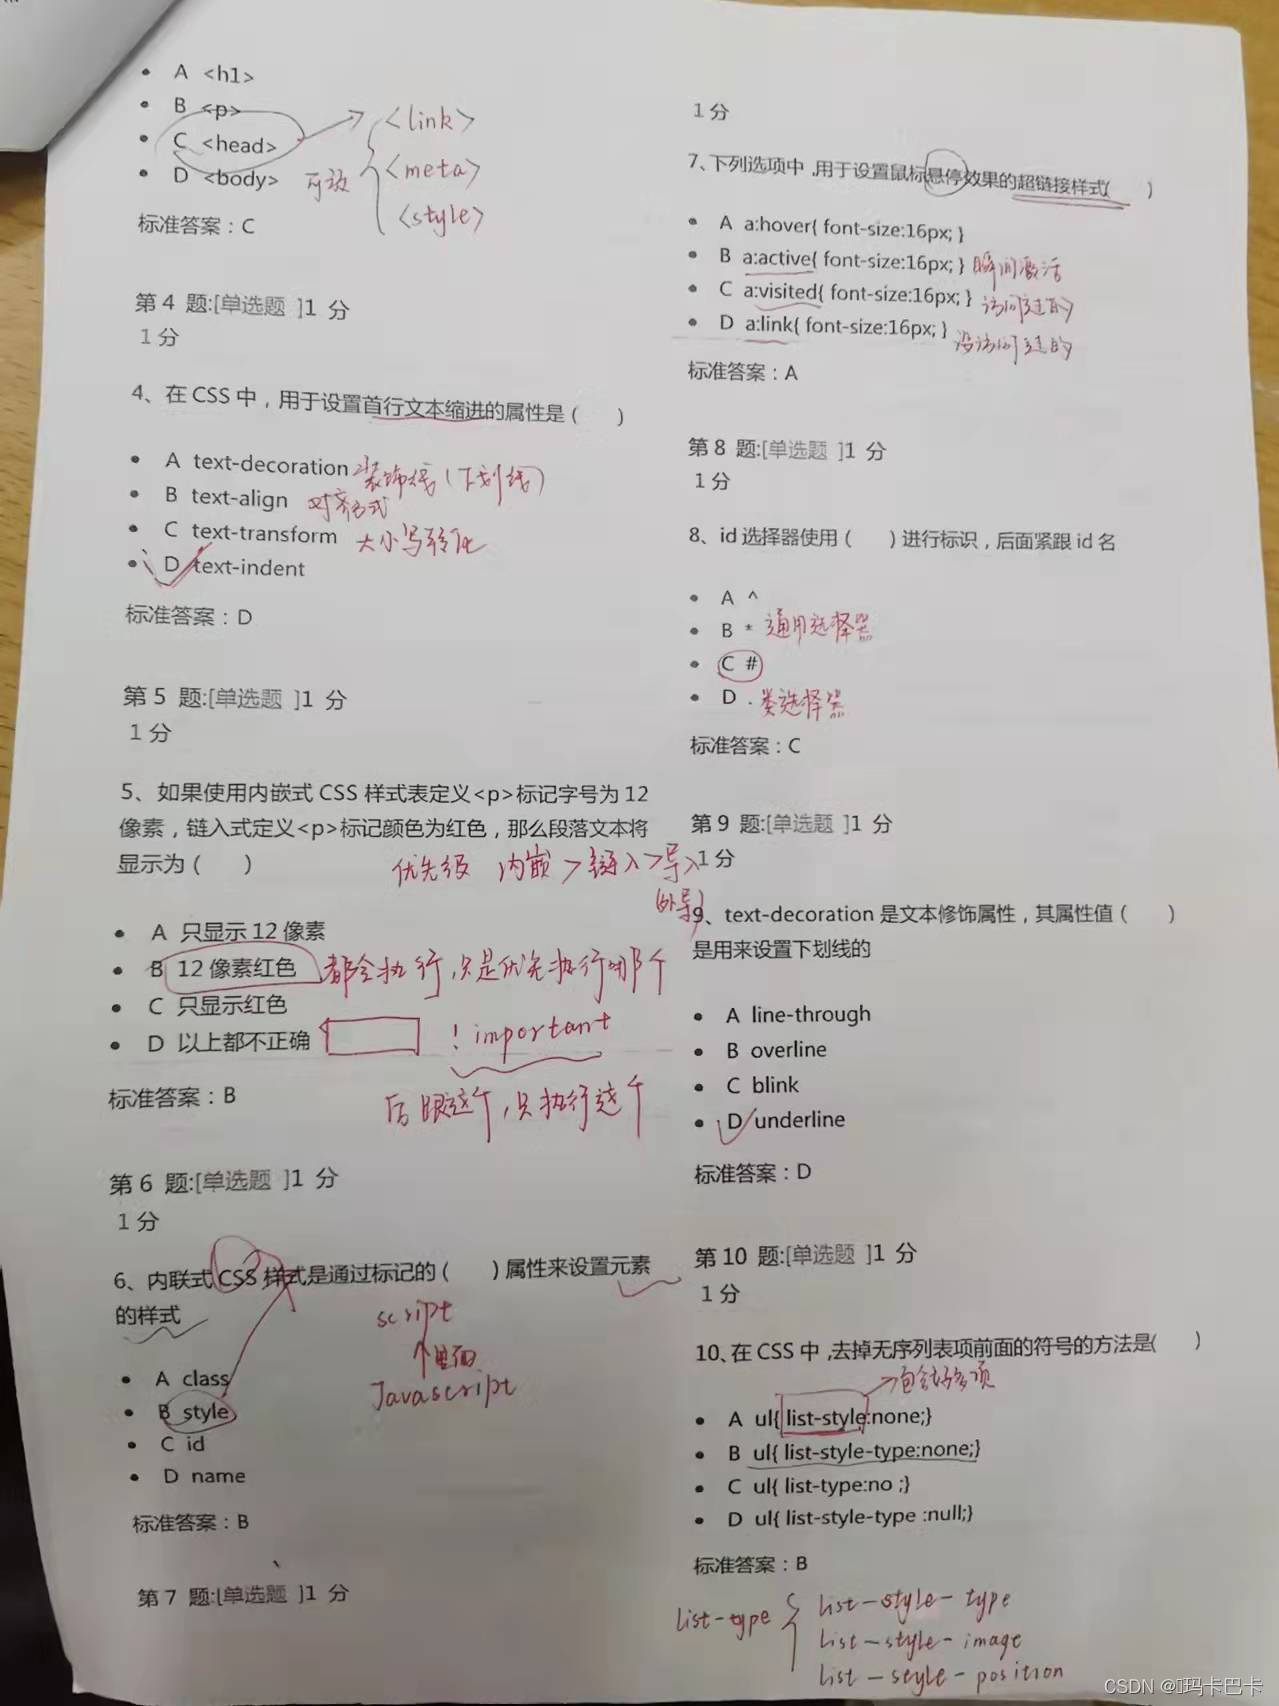 A <h1>
B <p>
C <head>
D <body>
<link>
<meta>
<style>
标准答案：C
第 4 题:[单选题 ]1 分
1 分
4、在 CSS 中，用于设置首行文本缩进的属性是（ ）
A text-decoration 装饰线（下划线）
B text-align 对齐方式
C text-transform 大小写转化
D text-indent
标准答案：D
第 5 题:[单选题 ]1 分
1 分
5、如果使用内嵌式 CSS 样式表定义<p>标记字号为 12
像素，链入式定义<p>标记颜色为红色，那么段落文本将
显示为（ ）
优先级 内嵌 > 链入 > 导入
(外导)
A 只显示 12 像素
B 12 像素红色 都会执行，只是优先执行哪个
C 只显示红色
D 以上都不正确
! important
后跟这个，只执行这个
标准答案：B
第 6 题:[单选题 ]1 分
1 分
6、内联式 CSS 样式是通过标记的（ ）属性来设置元素
的样式
script
里面
Javascript
A class
B style
C id
D name
标准答案：B
第 7 题:[单选题 ]1 分
1 分
7、下列选项中，用于设置鼠标悬停效果的超链接样式（ ）
A a:hover{ font-size:16px; }
B a:active{ font-size:16px; } 瞬间激活
C a:visited{ font-size:16px; } 访问过的
D a:link{ font-size:16px; } 没访问过的
标准答案：A
第 8 题:[单选题 ]1 分
1 分
8、id 选择器使用（ ）进行标识，后面紧跟 id 名
A ^
B * 通用选择器
C #
D . 类选择器
标准答案：C
第 9 题:[单选题 ]1 分
1 分
9、text-decoration 是文本修饰属性，其属性值（ ）
是用来设置下划线的
A line-through
B overline
C blink
D underline
标准答案：D
第 10 题:[单选题 ]1 分
1 分
10、在 CSS 中，去掉无序列表项前面的符号的方法是（ ）
包含好多项
A ul{ list-style:none;}
B ul{ list-style-type:none;}
C ul{ list-type:no ;}
D ul{ list-style-type :null;}
标准答案：B
list-type
list-style-type
list-style-image
list-style-position
CSDN @玛卡巴卡